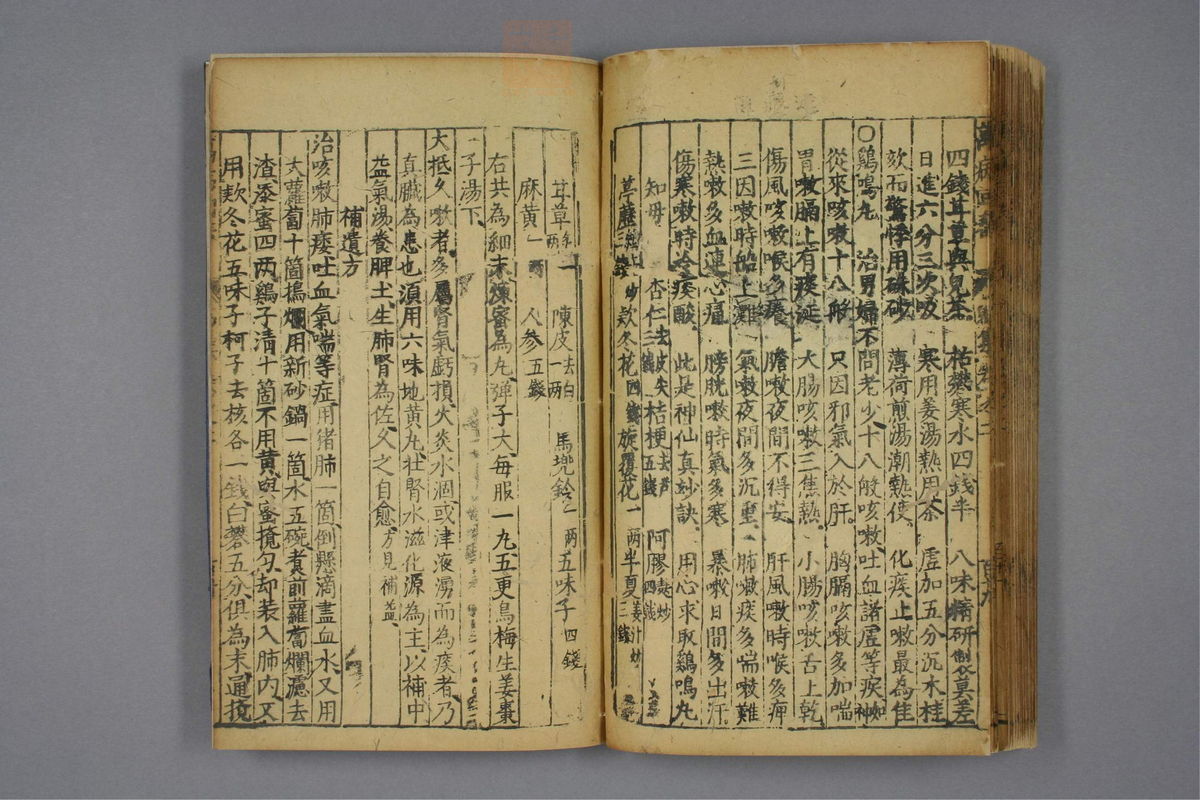 四錢甘草與兒茶　枯礬寒水四錢半　八味精研制莫差
日進六分三次吸　寒用姜湯熱用茶　虛加五分沉木桂
欬而驚悸用硃砂　薄荷煎湯潮熱使　化痰止嗽最為佳
○鷄鳴丸　治男婦不問老少十八般咳嗽吐血諸虛等疾神
從來咳嗽十八般　只因邪氣入於肝　胸膈咳嗽多加喘
胃嗽膈上有痰涎　大腸咳嗽三焦熱　小腸咳嗽舌上乾
傷風咳嗽喉多癢　膽嗽夜間不得安　肝風嗽時喉多痺
三因嗽時船上灘　氣嗽夜間多沉重　肺嗽痰多喘嗽難
熱嗽多血連心痛　膀胱嗽時氣多寒　暴嗽日間多出汗
傷寒嗽時冷痰酸　此是神仙真妙訣　用心求取鷄鳴丸
知母　杏仁去皮尖二錢　桔梗去芦五錢　阿膠麩炒四錢
葶藶三錢紙上炒　款冬花四錢　旋覆花一兩　半夏三錢姜汁炒
甘草一兩　陳皮去白一兩　馬兜鈴一兩　五味子四錢
麻黃一兩　人參五錢
右共為細末煉蜜為丸彈子大每服一丸五更烏梅生姜棗
子湯下
大抵久嗽者多屬腎氣虧損火炎水涸或津液湧而為痰者乃
真臟為患也須用六味地黃丸壯腎水滋化源為主以補中
益氣湯養脾土生肺腎為佐久之自愈方見補益
補遺方
治咳嗽肺痿吐血氣喘等症用猪肺一箇倒懸滴盡血水又用
大蘿蔔十箇搗爛用新砂鍋一箇水五碗煮前蘿蔔爛濾去
渣添蜜四两鷄子清十箇不用黃與蜜攪勻却装入肺內又
用款冬花五味子柯子去核各一錢白礬五分俱為末通攪